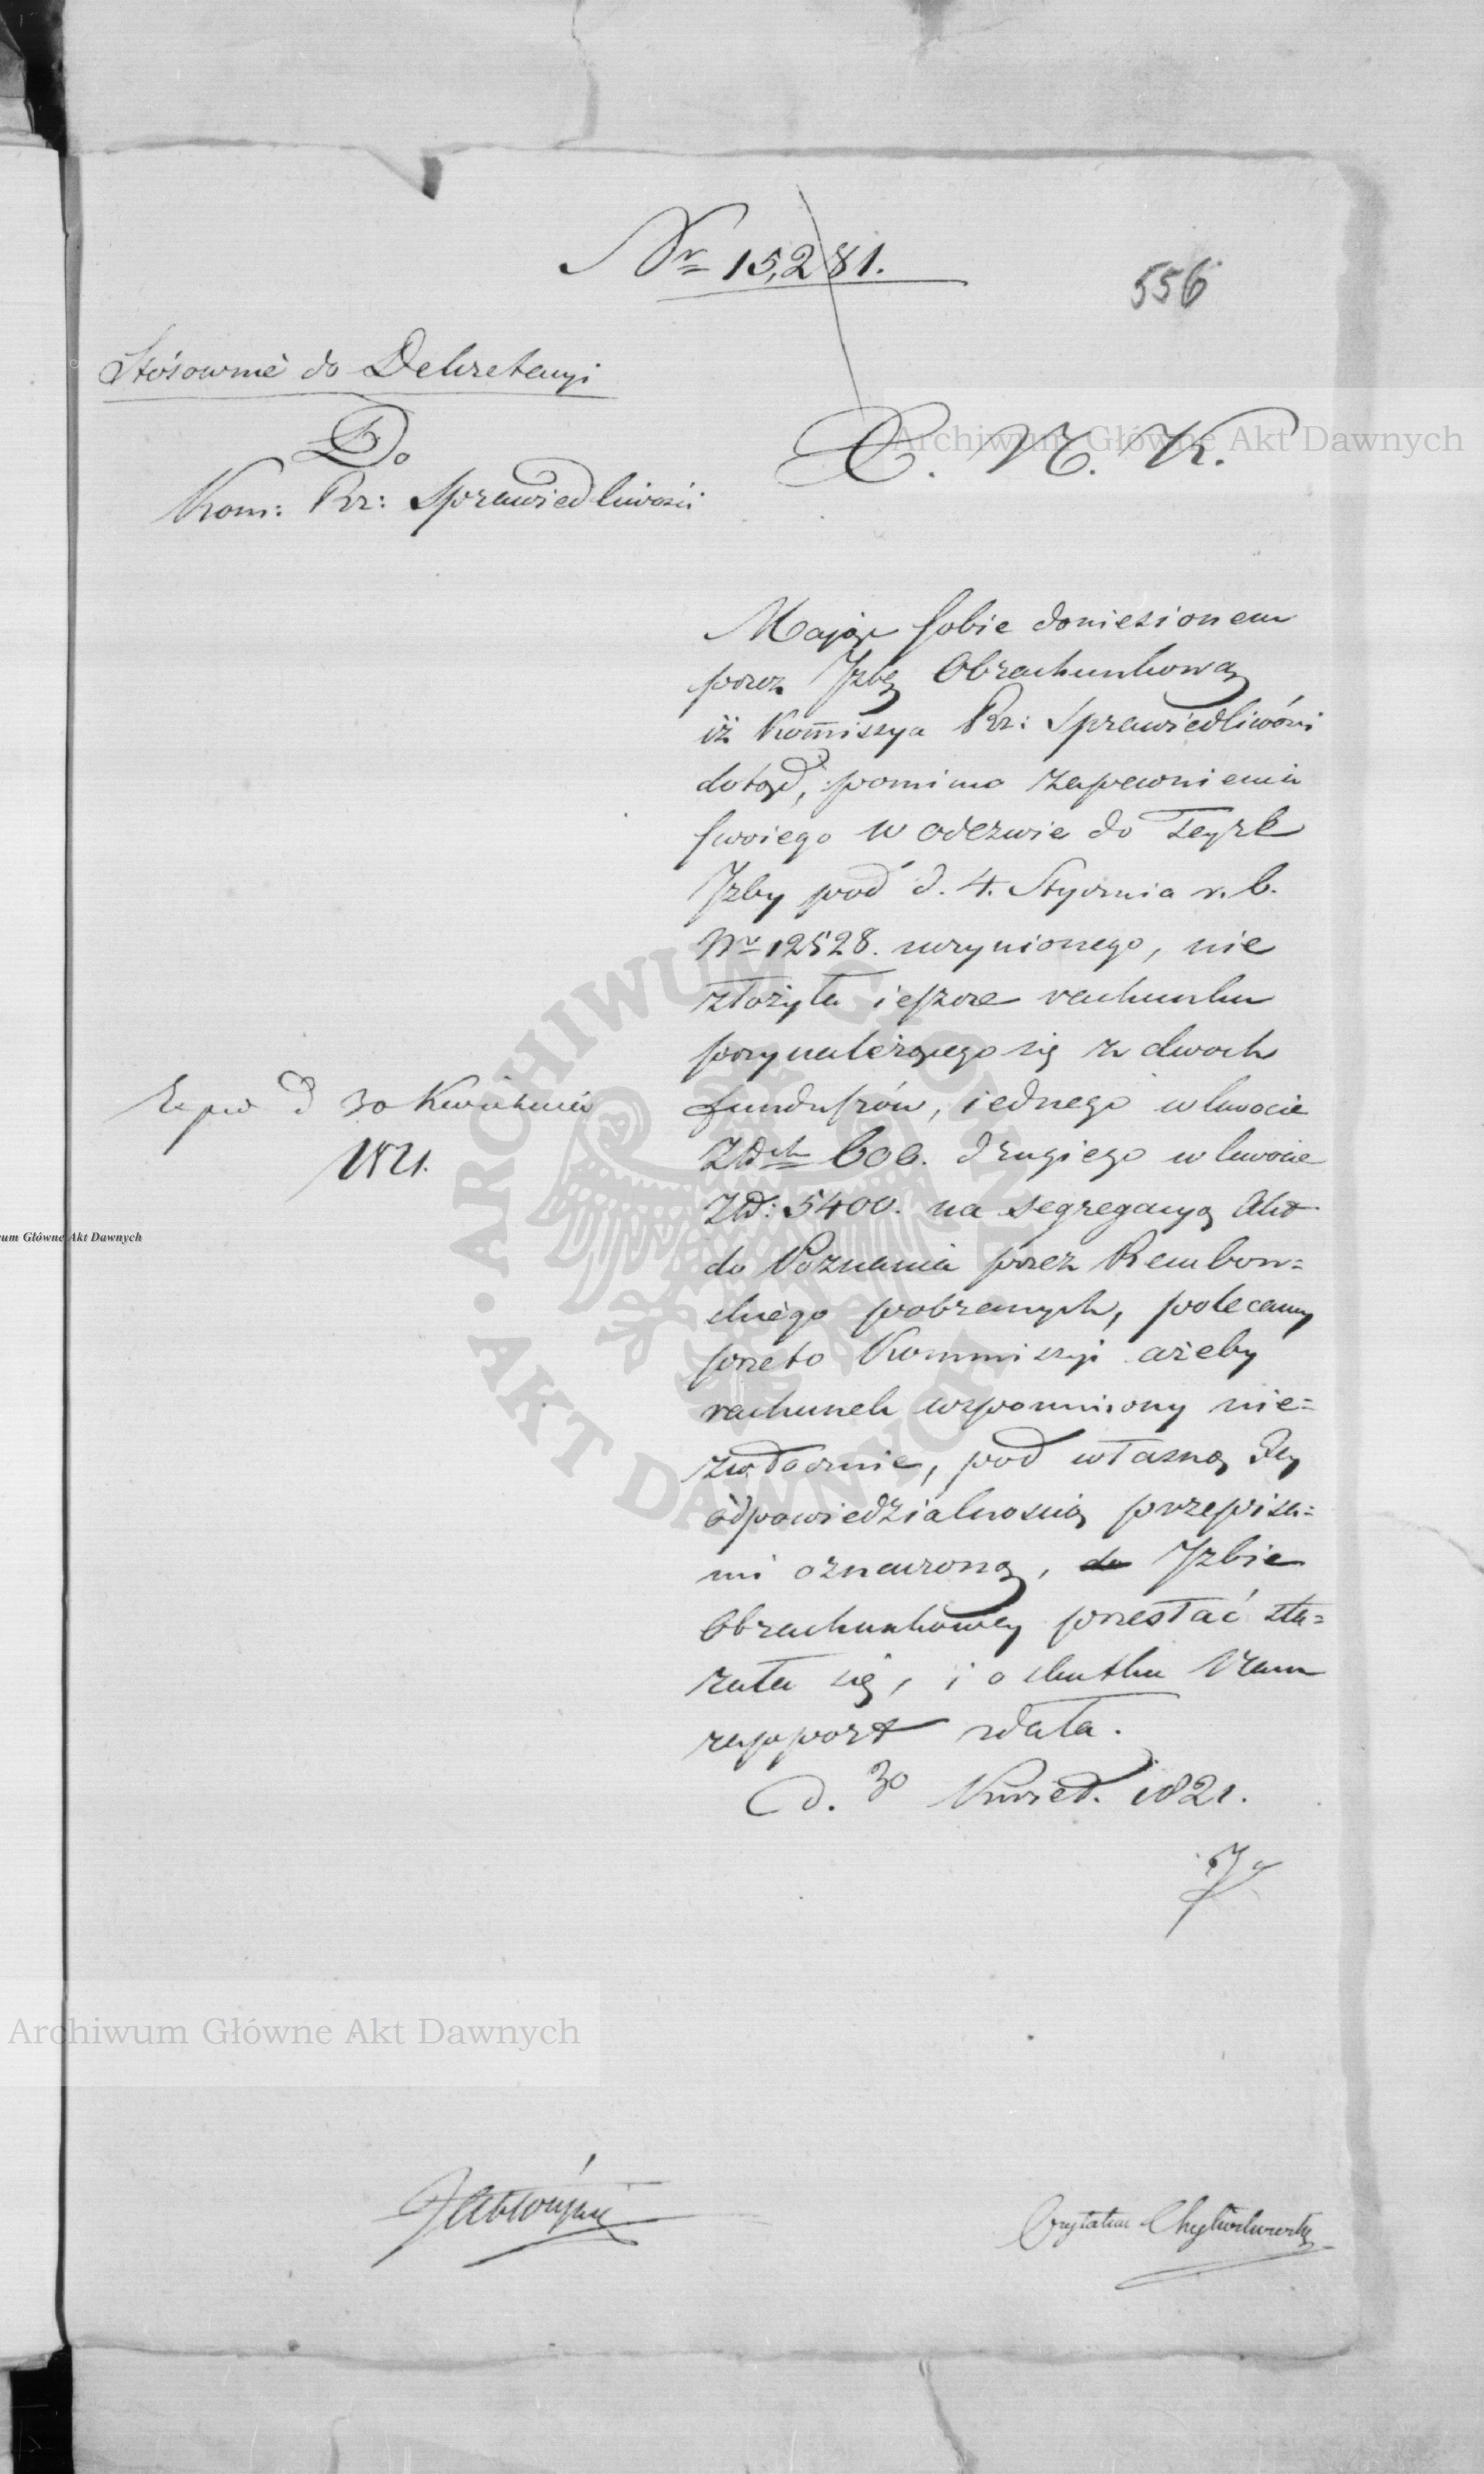 Nr 15,281.
556
Stósownie do Dekretacyi
Do
Kom: Rz: Sprawiedliwości
X. N. K.
Mając sobie doniesionem
przez Jzbę Obrachunkową
iż Kommissya Rz: Sprawiedliwości
dotąd, pomimo zapewnienia
swoiego w odezwie do teyże
Jzby pod d. 4. Stycznia r. b.
Nr 12528. uczynionego, nie
złożyła ieszcze rachunku
przynależącego się z dwóch
funduszów, iednego w kwocie
Zł 600. drugiego w kwocie
Zł: 5400. na segregacyą Akt
do Poznania przez Rembow=
skiego pobranych, polecamy
przeto Kommissyi ażeby
rachunek wspomniony nie=
zwłocznie, pod własną Jey
odpowiedzialnością przepisa=
mi oznaczoną, do Jzbie
Obrachunkowey przesłać sta=
rała się, i o skutku Nam
rapport zdała.
d. 30 Kwiet. 1821.
Exped d 30 Kwietnia
1821.
Jabłoński
Czytałem
Archiwum Główne Akt Dawnych
um Główne Akt Dawnych
Archiwum Główne Akt Dawnych
ARCHIWUM GŁÓWNE · AKT DAWNYCH ·